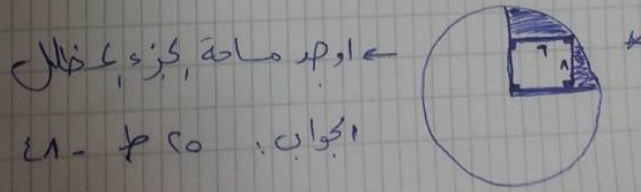 ← اوجد مساحة الجزء المظلل
٦
٨
الجواب: ٢٥ ط - ٤٨